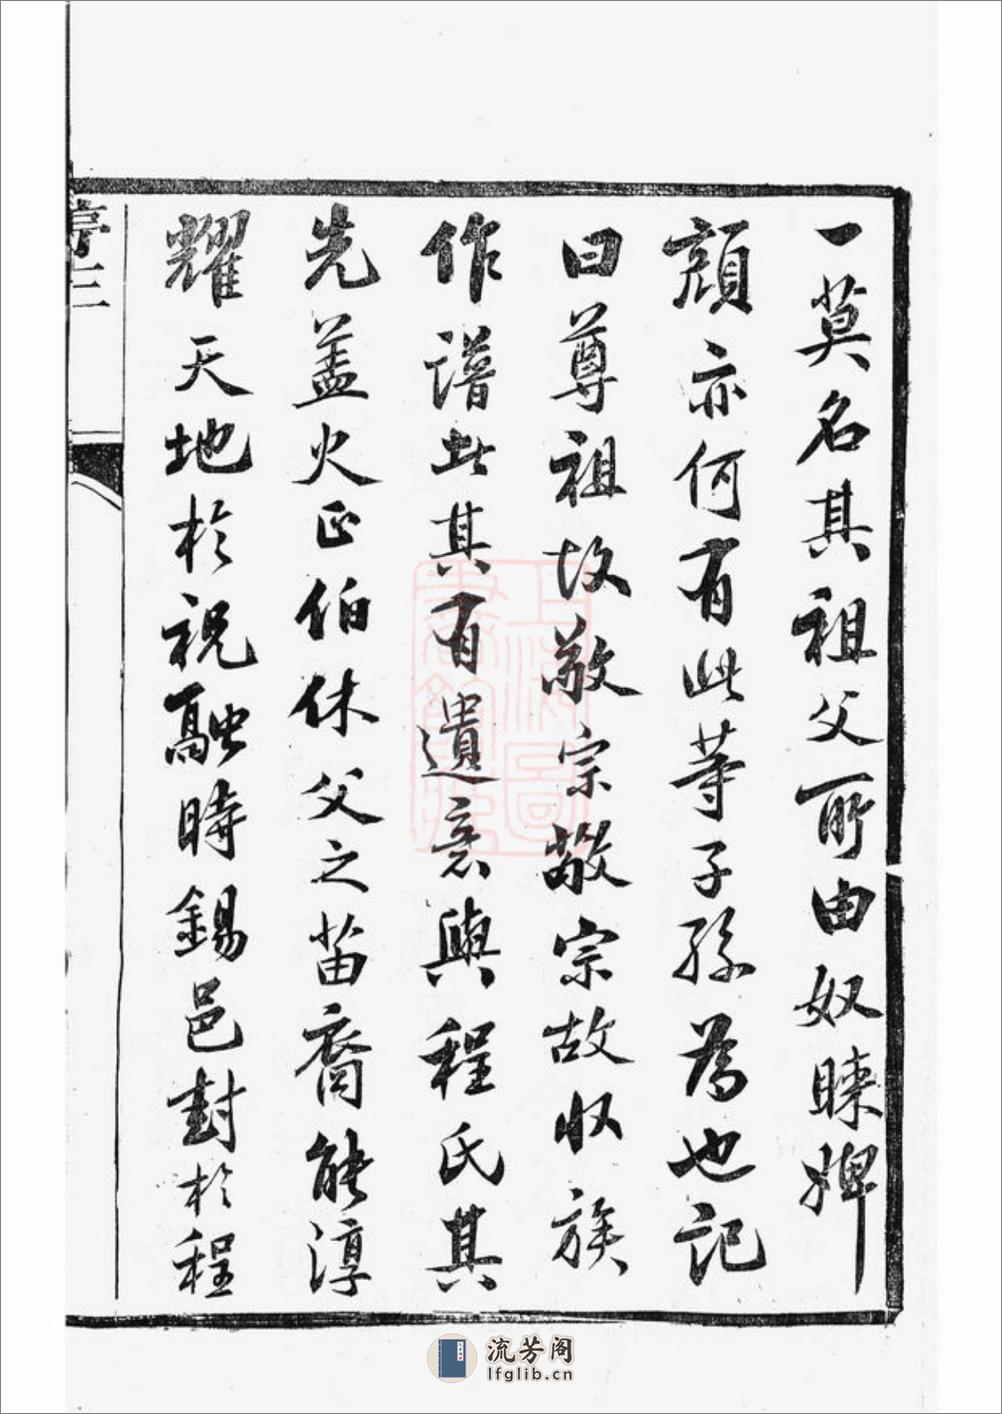 一莫名其祖父所由奴睞婢
顔亦何有此等子孫為也記
曰尊祖故敬宗敬宗故収族
作譜此其有遺意與程氏其
先盖火正伯休父之苗裔能淳
耀天地於祝融時錫邑封於程
亭三
上海圖書館藏
流芳阁
lfglib.cn